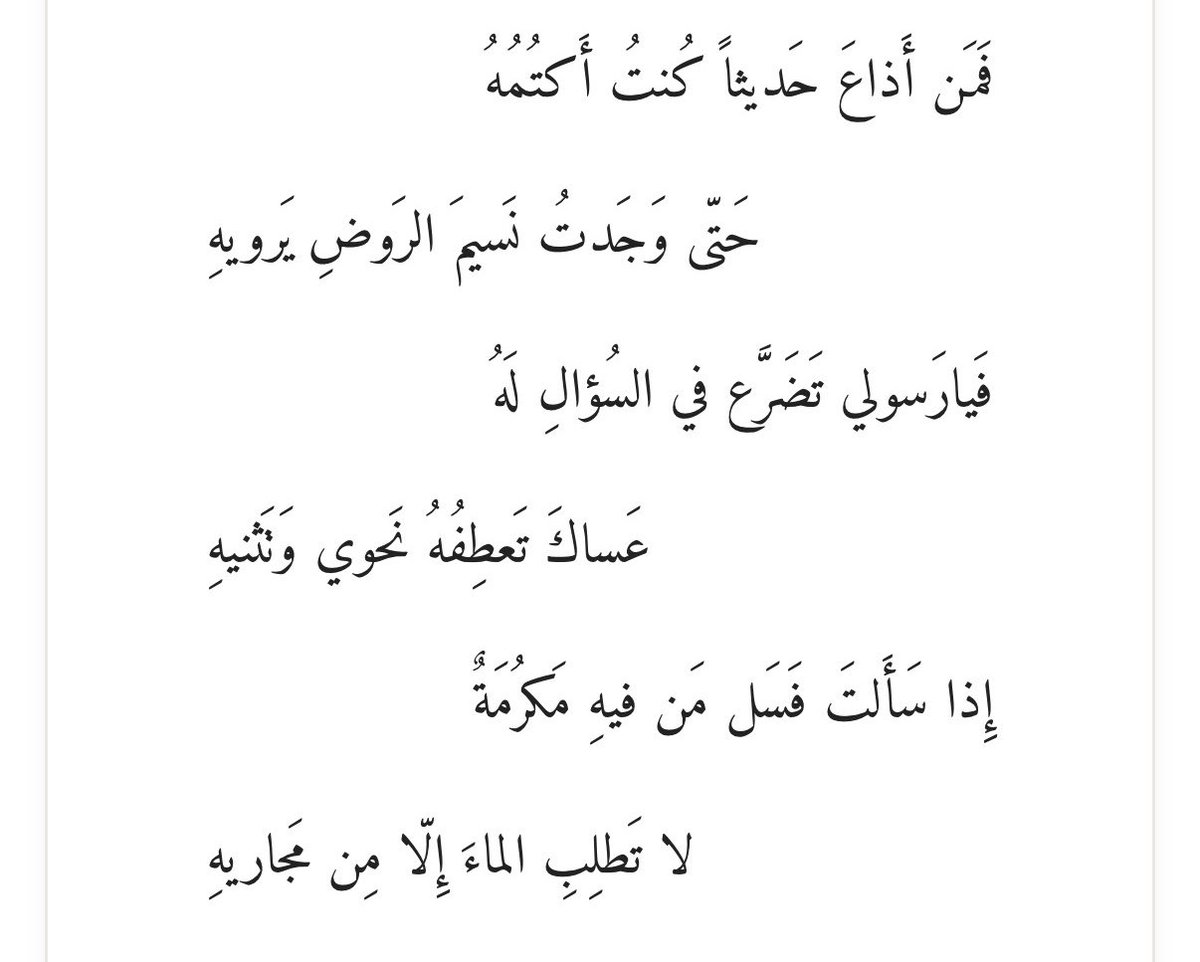 فَمَن أَذاعَ حَديثاً كُنتُ أَكتُمُهُ
حَتّى وَجَدتُ نَسيمَ الرَوضِ يَرويهِ
فَيارَسولي تَضَرَّع في السُؤالِ لَهُ
عَساكَ تَعطِفُهُ نَحوي وَتَثنيهِ
إِذا سَأَلتَ فَسَل مَن فيهِ مَكرُمَةٌ
لا تَطلِبِ الماءَ إِلّا مِن مَجاريهِ